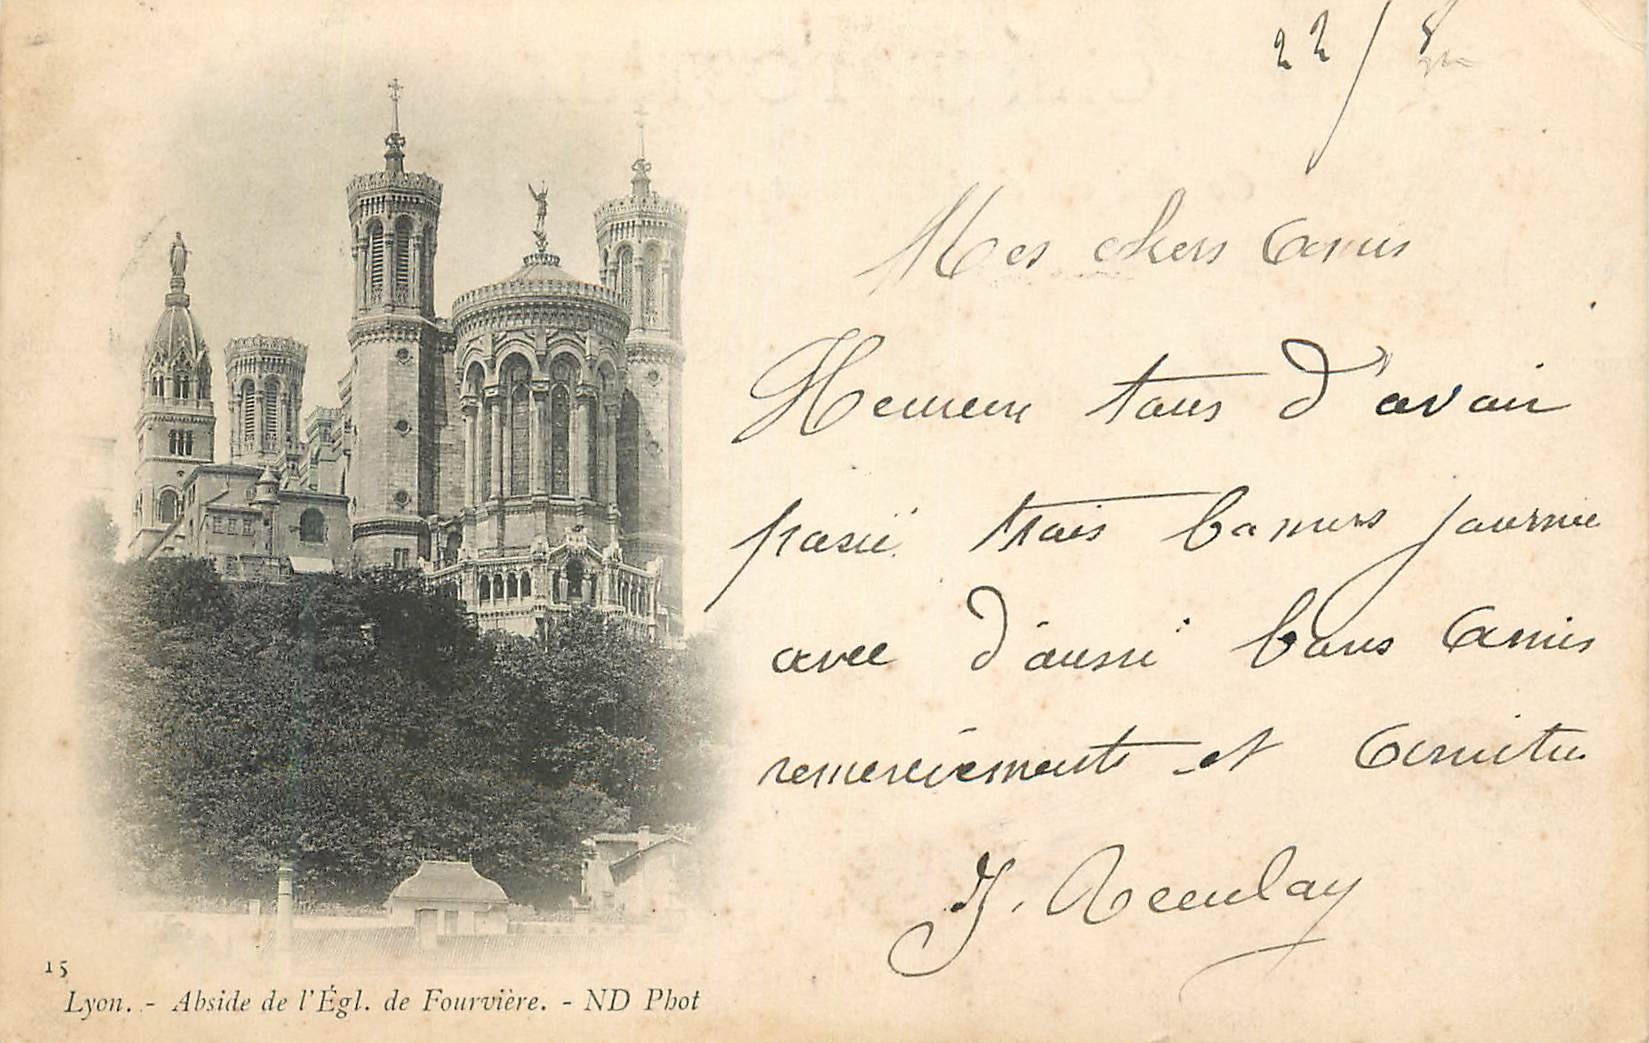 22/8
Mes chers Amis
Heureux tous d'avoir
passé trois bonnes journée
avec d'aussi bons Amis
remerciements et Amitiés
15
Lyon. - Abside de l'Égl. de Fourvière. - ND Phot